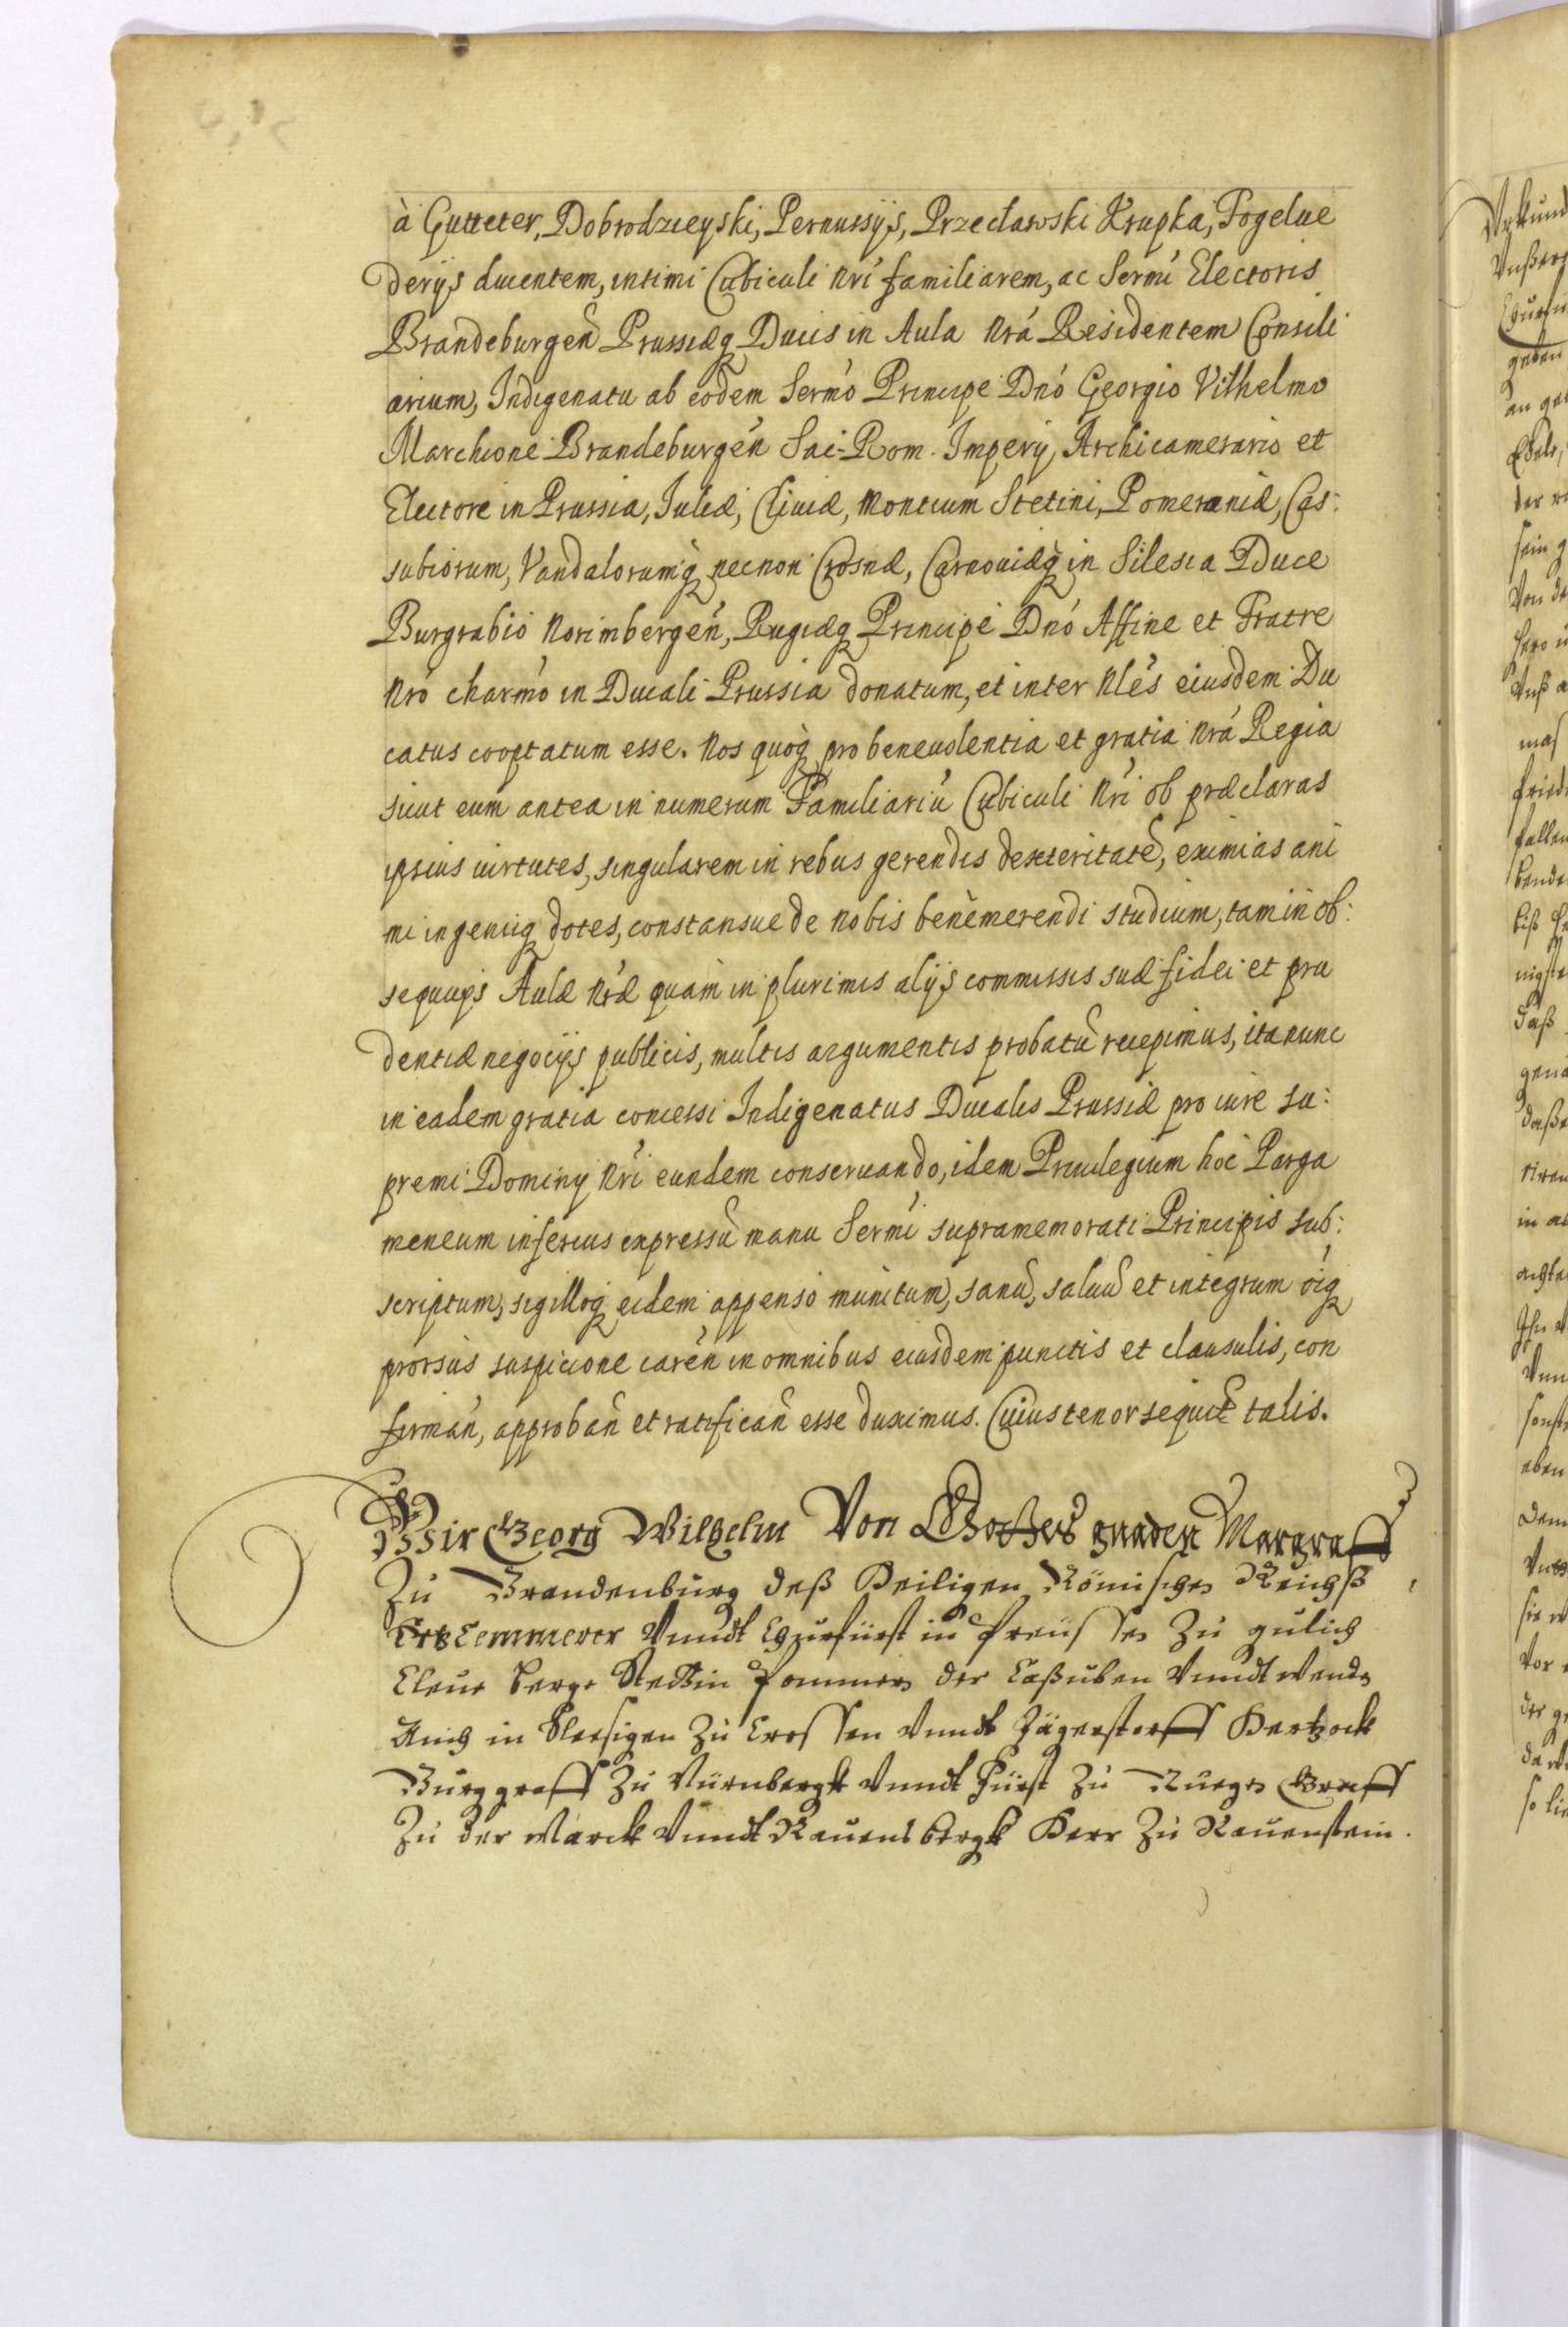 à Gutteter, Dobrodzieyski, Pernussijs, Przecławski Krupka, Fogelue
derijs ducentem, intimi Cubiculi nri familiarem, ac Sermi Electoris
Brandeburgen Prussiæq Ducis in Aula nra Residentem Consili
arium, Indigenatu ab eodem Sermo Principe Dno Georgio Vilhelmo
Marchione Brandeburgen Sac. Rom. Impery Archicamerario et
Electore in Prussia, Iuliæ, Cliuiæ, Montium Stetini, Pomeraniæ, Cas:
subiorum, Vandalorumq necnon Crosnæ, Carnouiæq in Silesia Duce
Burgrabio Norimbergen, Rugiæq Principe Dno Affine et Fratre
nro charmo in Ducali Prussia donatum, et inter Nles eiusdem Du
catus cooptatum esse. Nos quoq pro beneuolentia et gratia nra Regia
sicut eum antea in numerum Familiariu Cubiculi nri ob præclaras
ipsius uirtutes, singularem in rebus gerendis dexteritate, eximias ani
mi ingeniiq dotes, constansue de nobis benemerendi studium, tam in ob:
sequijs Aulæ nræ quàm in plurimis alijs commissis suæ fidei et pru
dentiæ negocijs publicis, multis argumentis probatu recepimus, ita nunc
in eadem gratia concessi Indigenatus Ducalis Prussiæ pro iure su:
premi Dominy nri eundem conseruando, idem Priuilegium hoc Parga
meneum inferius expressu manu Sermi supramemorati Principis sub:
scriptum, sigilloq eidem appenso munitum, sanu, saluu et integrum oiq
prorsus suspicione caren in omnibus eiusdem punctis et clausulis, con
firman, approban et ratifican esse duximus. Cuius tenor sequit talis.
Wir Georg Wilhelm Von Gottes gnaden Margraff
Zu Brandenburg deß Heiligen Römischen Reichß
Ertz Cemmerer Vnndt Churfürst in Preussen Zu gulich
Cleue Berge Stettin Pommern der Caßuben Vnndt Wenden
Auch in Slesigen Zu Crossen Vnndt Jägerstorff Hertzock
Burggraff Zu Nürnbergk Vnndt Fürst Zu Ruegen Graff
Zu der Marck Vnndt Rauensbergk Herr Zu Rauenstein.